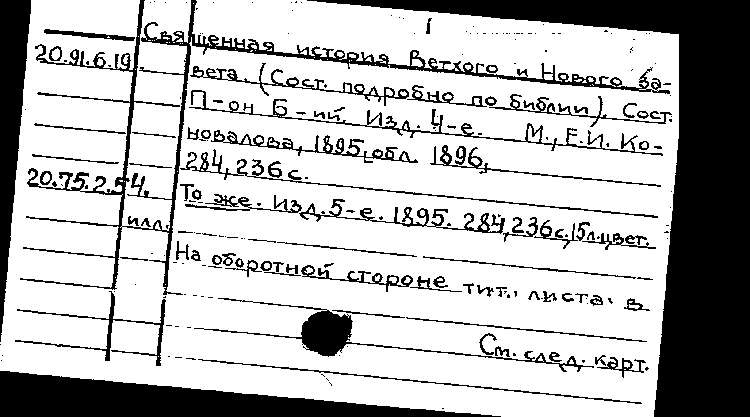 1
Священная история Ветхого и Нового За-
20.91.6.19. вета. (Сост. подробно по библии). Сост.
П-он Б-ий. Изд. 4-е. М., Е.И. Ко-
новалова, 1895, обл. 1896,
284, 236 с.
20.75.2.54. То же. Изд. 5-е. 1895. 284, 236 с., 15 л. цвет.
илл.
На оборотной стороне тит. листа в
См. след. карт.